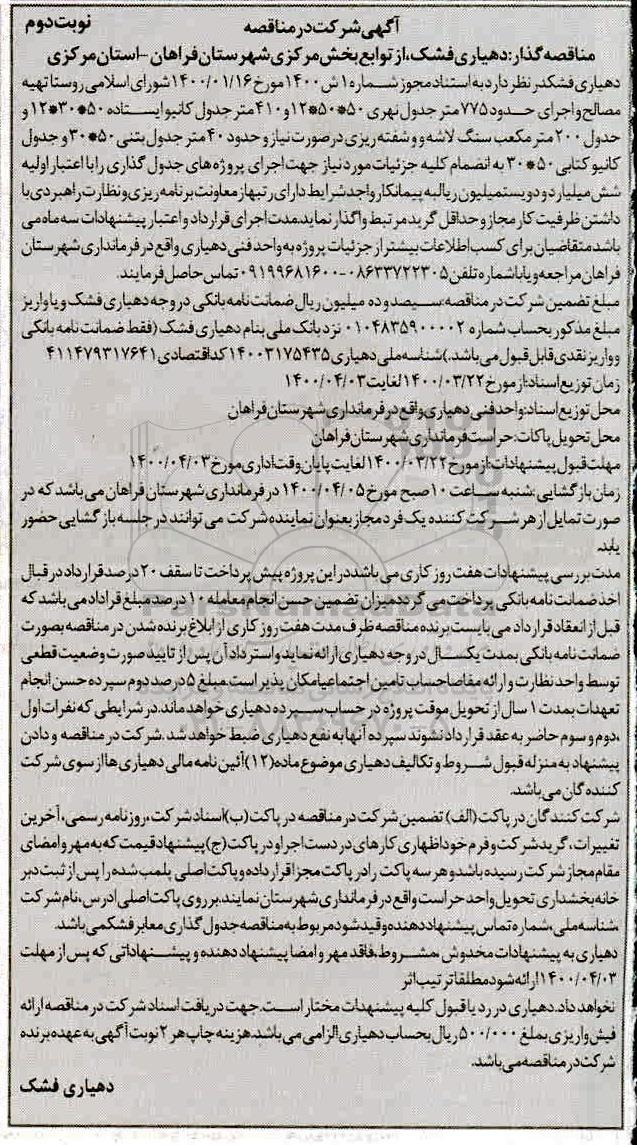 آگهی شرکت در مناقصه
نوبت دوم
مناقصه گذار: دهیاری فشک، از توابع بخش مرکزی شهرستان فراهان -استان مرکزی
دهیاری فشک در نظر دارد به استناد مجوز شماره ۱ش ۱۴۰۰ مورخ ۱۴۰۰/۰۱/۱۶ شورای اسلامی روستا تهیه
مصالح و اجرای حدود ۷۷۵ متر جدول نهری ۵۰*۵۰*۱۲ و ۴۱۰ متر جدول کانیو ایستاده ۵۰*۳۰*۱۲ و
حدول ۲۰۰ متر مکعب سنگ لاشه و و شفته ریزی در صورت نیاز و حدود ۴۰ متر جدول بتنی ۵۰*۳۰ و جدول
کانیو کتابی ۵۰*۳۰ به انضمام کلیه جزئیات مورد نیاز جهت اجرای پروژه های جدول گذاری را با اعتبار اولیه
شش میلیارد و دویست میلیون ریال به پیمانکار واجد شرایط دارای رتبه از معاونت برنامه ریزی و نظارت راهبردی با
داشتن ظرفیت کار مجاز و حداقل گرید مرتبط واگذار نماید. مدت اجرای قرارداد و اعتبار پیشنهادات سه ماه می
باشد متقاضیان برای کسب اطلاعات بیشتر از جزئیات پروژه به واحد فنی دهیاری واقع در فرمانداری شهرستان
فراهان مراجعه و یا با شماره تلفن ۰۸۶۳۳۷۲۲۳۰۵-۰۹۱۹۹۶۸۱۶۰۰ تماس حاصل فرمایند.
مبلغ تضمین شرکت در مناقصه: سیصد و ده میلیون ریال ضمانت نامه بانکی در وجه دهیاری فشک و یا واریز
مبلغ مذکور بحساب شماره ۰۱۰۴۸۳۵۹۰۰۰۰۲ نزد بانک ملی بنام دهیاری فشک (فقط ضمانت نامه بانکی
و واریز نقدی قابل قبول می باشد.) شناسه ملی دهیاری ۱۴۰۰۳۱۷۵۴۳۵ کد اقتصادی ۴۱۱۴۷۹۳۱۷۶۴۱
زمان توزیع اسناد: از مورخ ۱۴۰۰/۰۳/۲۲ لغایت ۱۴۰۰/۰۴/۰۳
محل توزیع اسناد: واحد فنی دهیاری واقع در فرمانداری شهرستان فراهان
محل تحویل پاکات: حراست فرمانداری شهرستان فراهان
مهلت قبول پیشنهادات: از مورخ ۱۴۰۰/۰۳/۲۲ لغایت پایان وقت اداری مورخ ۱۴۰۰/۰۴/۰۳
زمان بازگشایی: شنبه ساعت ۱۰ صبح مورخ ۱۴۰۰/۰۴/۰۵ در فرمانداری شهرستان فراهان می باشد که در
صورت تمایل از هر شرکت کننده یک فرد مجاز بعنوان نماینده شرکت می توانند در جلسه بازگشایی حضور
یابد.
مدت بررسی پیشنهادات هفت روز کاری می باشد در این پروژه پیش پرداخت تا سقف ۲۰ درصد قرارداد در قبال
اخذ ضمانت نامه بانکی پرداخت می گردد میزان تضمین حسن انجام معامله ۱۰ درصد مبلغ قراداد می باشد که
قبل از انعقاد قرارداد می بایست برنده مناقصه ظرف مدت هفت روز کاری از ابلاغ برنده شدن در مناقصه بصورت
ضمانت نامه بانکی بمدت یکسال در وجه دهیاری ارائه نماید و استرداد آن پس از تایید صورت وضعیت قطعی
توسط واحد نظارت و ارائه مفاصاحساب تامین اجتماعی امکان پذیر است. مبلغ ۵ درصد دوم سپرده حسن انجام
تعهدات بمدت ۱ سال از تحویل موقت پروژه در حساب سپرده دهیاری خواهد ماند. در شرایطی که نفرات اول
،دوم و سوم حاضر به عقد قرارداد نشوند سپرده آنها به نفع دهیاری ضبط خواهد شد. شرکت در مناقصه و دادن
پیشنهاد به منزله قبول شروط و تکالیف دهیاری موضوع ماده (۱۲) آئین نامه مالی دهیاری ها از سوی شرکت
کننده گان می باشد.
شرکت کنندگان در پاکت (الف) تضمین شرکت در مناقصه در پاکت (ب) اسناد شرکت، روزنامه رسمی، آخرین
تغییرات، گرید شرکت و فرم خود اظهاری کارهای در دست اجرا و در پاکت (ج) پیشنهاد قیمت که به مهر و امضای
مقام مجاز شرکت رسیده باشد و هر سه پاکت را در پاکت مجزا قرار داده و پاکت اصلی پلمب شده را پس از ثبت دبر
خانه بخشداری تحویل واحد حراست واقع در فرمانداری شهرستان نمایند. بر روی پاکت اصلی ادرس، نام شرکت
،شناسه ملی، شماره تماس پیشنهاد دهنده و قید شود مربوط به مناقصه جدول گذاری معابر فشک می باشد.
دهیاری به پیشنهادات مخدوش، مشروط، فاقد مهر و امضا پیشنهاد دهنده و پیشنهاداتی که پس از مهلت
۱۴۰۰/۰۴/۰۳ ارائه شود مطلقا ترتیب اثر
نخواهد داد. دهیاری در رد یا قبول کلیه پیشنهدات مختار است. جهت دریافت اسناد شرکت در مناقصه ارائه
فیش واریزی بمبلغ ۵۰۰/۰۰۰ ریال بحساب دهیاری الزامی می باشد. هزینه چاپ هر ۲ نوبت آگهی به عهده برنده
شرکت در مناقصه می باشد.
دهیاری فشک